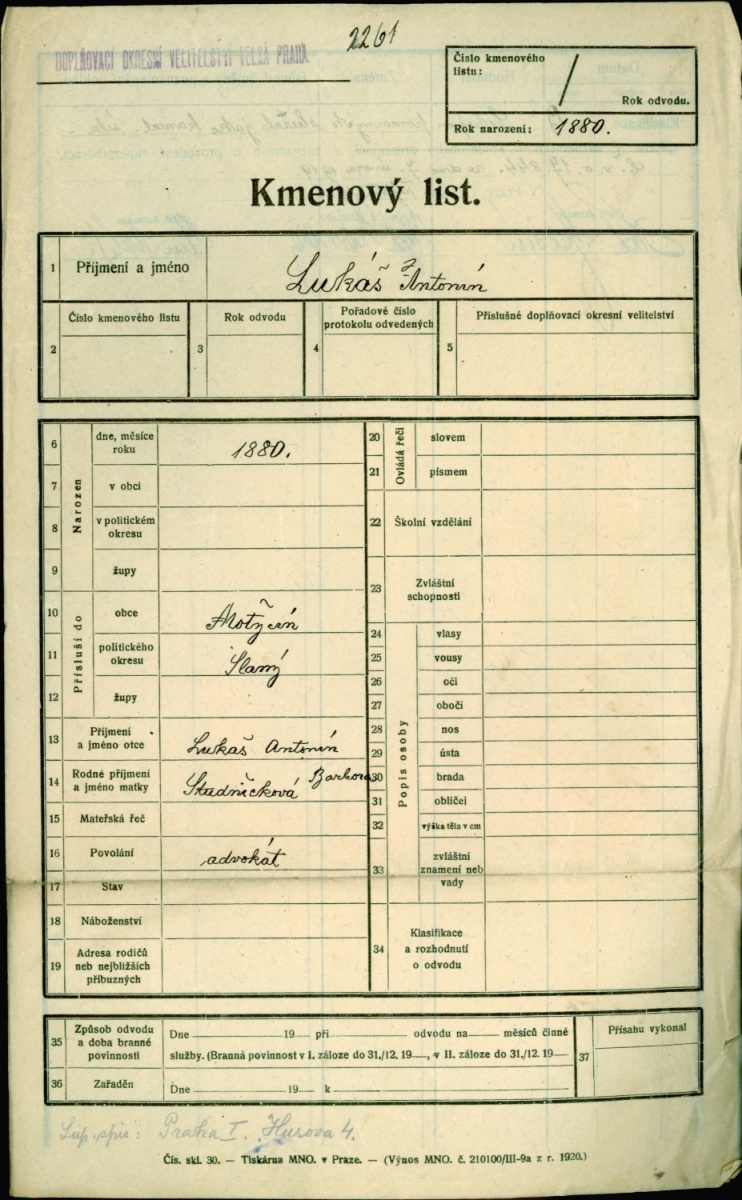 2261
DOPLŇOVACÍ OKRESNÍ VELITELSTVÍ VELKÁ PRAHA
Číslo kmenového
listu:
/
Rok odvodu.
Rok narození: 1880.
Kmenový list.
1 Příjmení a jméno Lukáš Antonín
2 Číslo kmenového listu
3 Rok odvodu
4 Pořadové číslo
protokolu odvedených
5 Příslušné doplňovací okresní velitelství
Narozen
6 dne, měsíce
roku 1880.
7 v obci
8 v politickém
okresu
9 župy
Přísluší do
10 obce Motyčín
11 politického
okresu Slaný
12 župy
13 Příjmení
a jméno otce Lukáš Antonín
14 Rodné příjmení
a jméno matky Studničková Barbora
15 Mateřská řeč
16 Povolání advokát
17 Stav
18 Náboženství
19 Adresa rodičů
neb nejbližších
příbuzných
Ovládá řeči
20 slovem
21 písmem
22 Školní vzdělání
23 Zvláštní
schopnosti
Popis osoby
24 vlasy
25 vousy
26 oči
27 obočí
28 nos
29 ústa
30 brada
31 obličej
32 výška těla v cm
33 zvláštní
znamení neb
vady
34 Klasifikace
a rozhodnutí
o odvodu
35 Způsob odvodu
a doba branné
povinnosti
Dne 19 při odvodu na měsíců činné
služby. (Branná povinnost v I. záloze do 31./12. 19 , v II. záloze do 31./12. 19
36 Zařaděn Dne 19 k
37 Přísahu vykonal
Sup. spis: Praha I. Husova 4.
Čís. skl. 30. — Tiskárna MNO. v Praze. — (Výnos MNO. č. 210100/III-9a z r. 1920.)